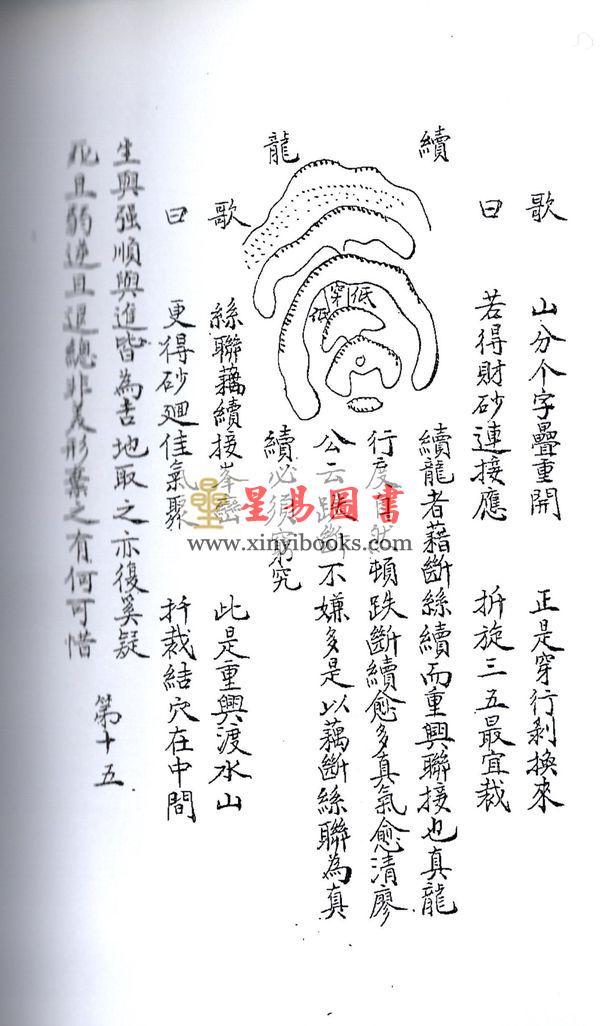 歌曰
山分个字疊重開　正是穿行剝換來
若得財砂連接應　折旋三五最宜裁
續龍
低
穿
低
續龍者藉斷絲續而重興聯接也真龍
行度自然頓跌斷續愈多真氣愈清廖
公云跌斷不嫌多是以藕斷絲聯為真
續必須窮究
歌曰
絲聯藕續接峯巒　此是重興渡水山
更得砂廻佳氣聚　扦裁結穴在中間
生與强順與進皆為吉地取之亦復奚疑
死且弱逆且退總非美形棄之有何可惜
第十五
星易圖書
www.xinyibooks.com